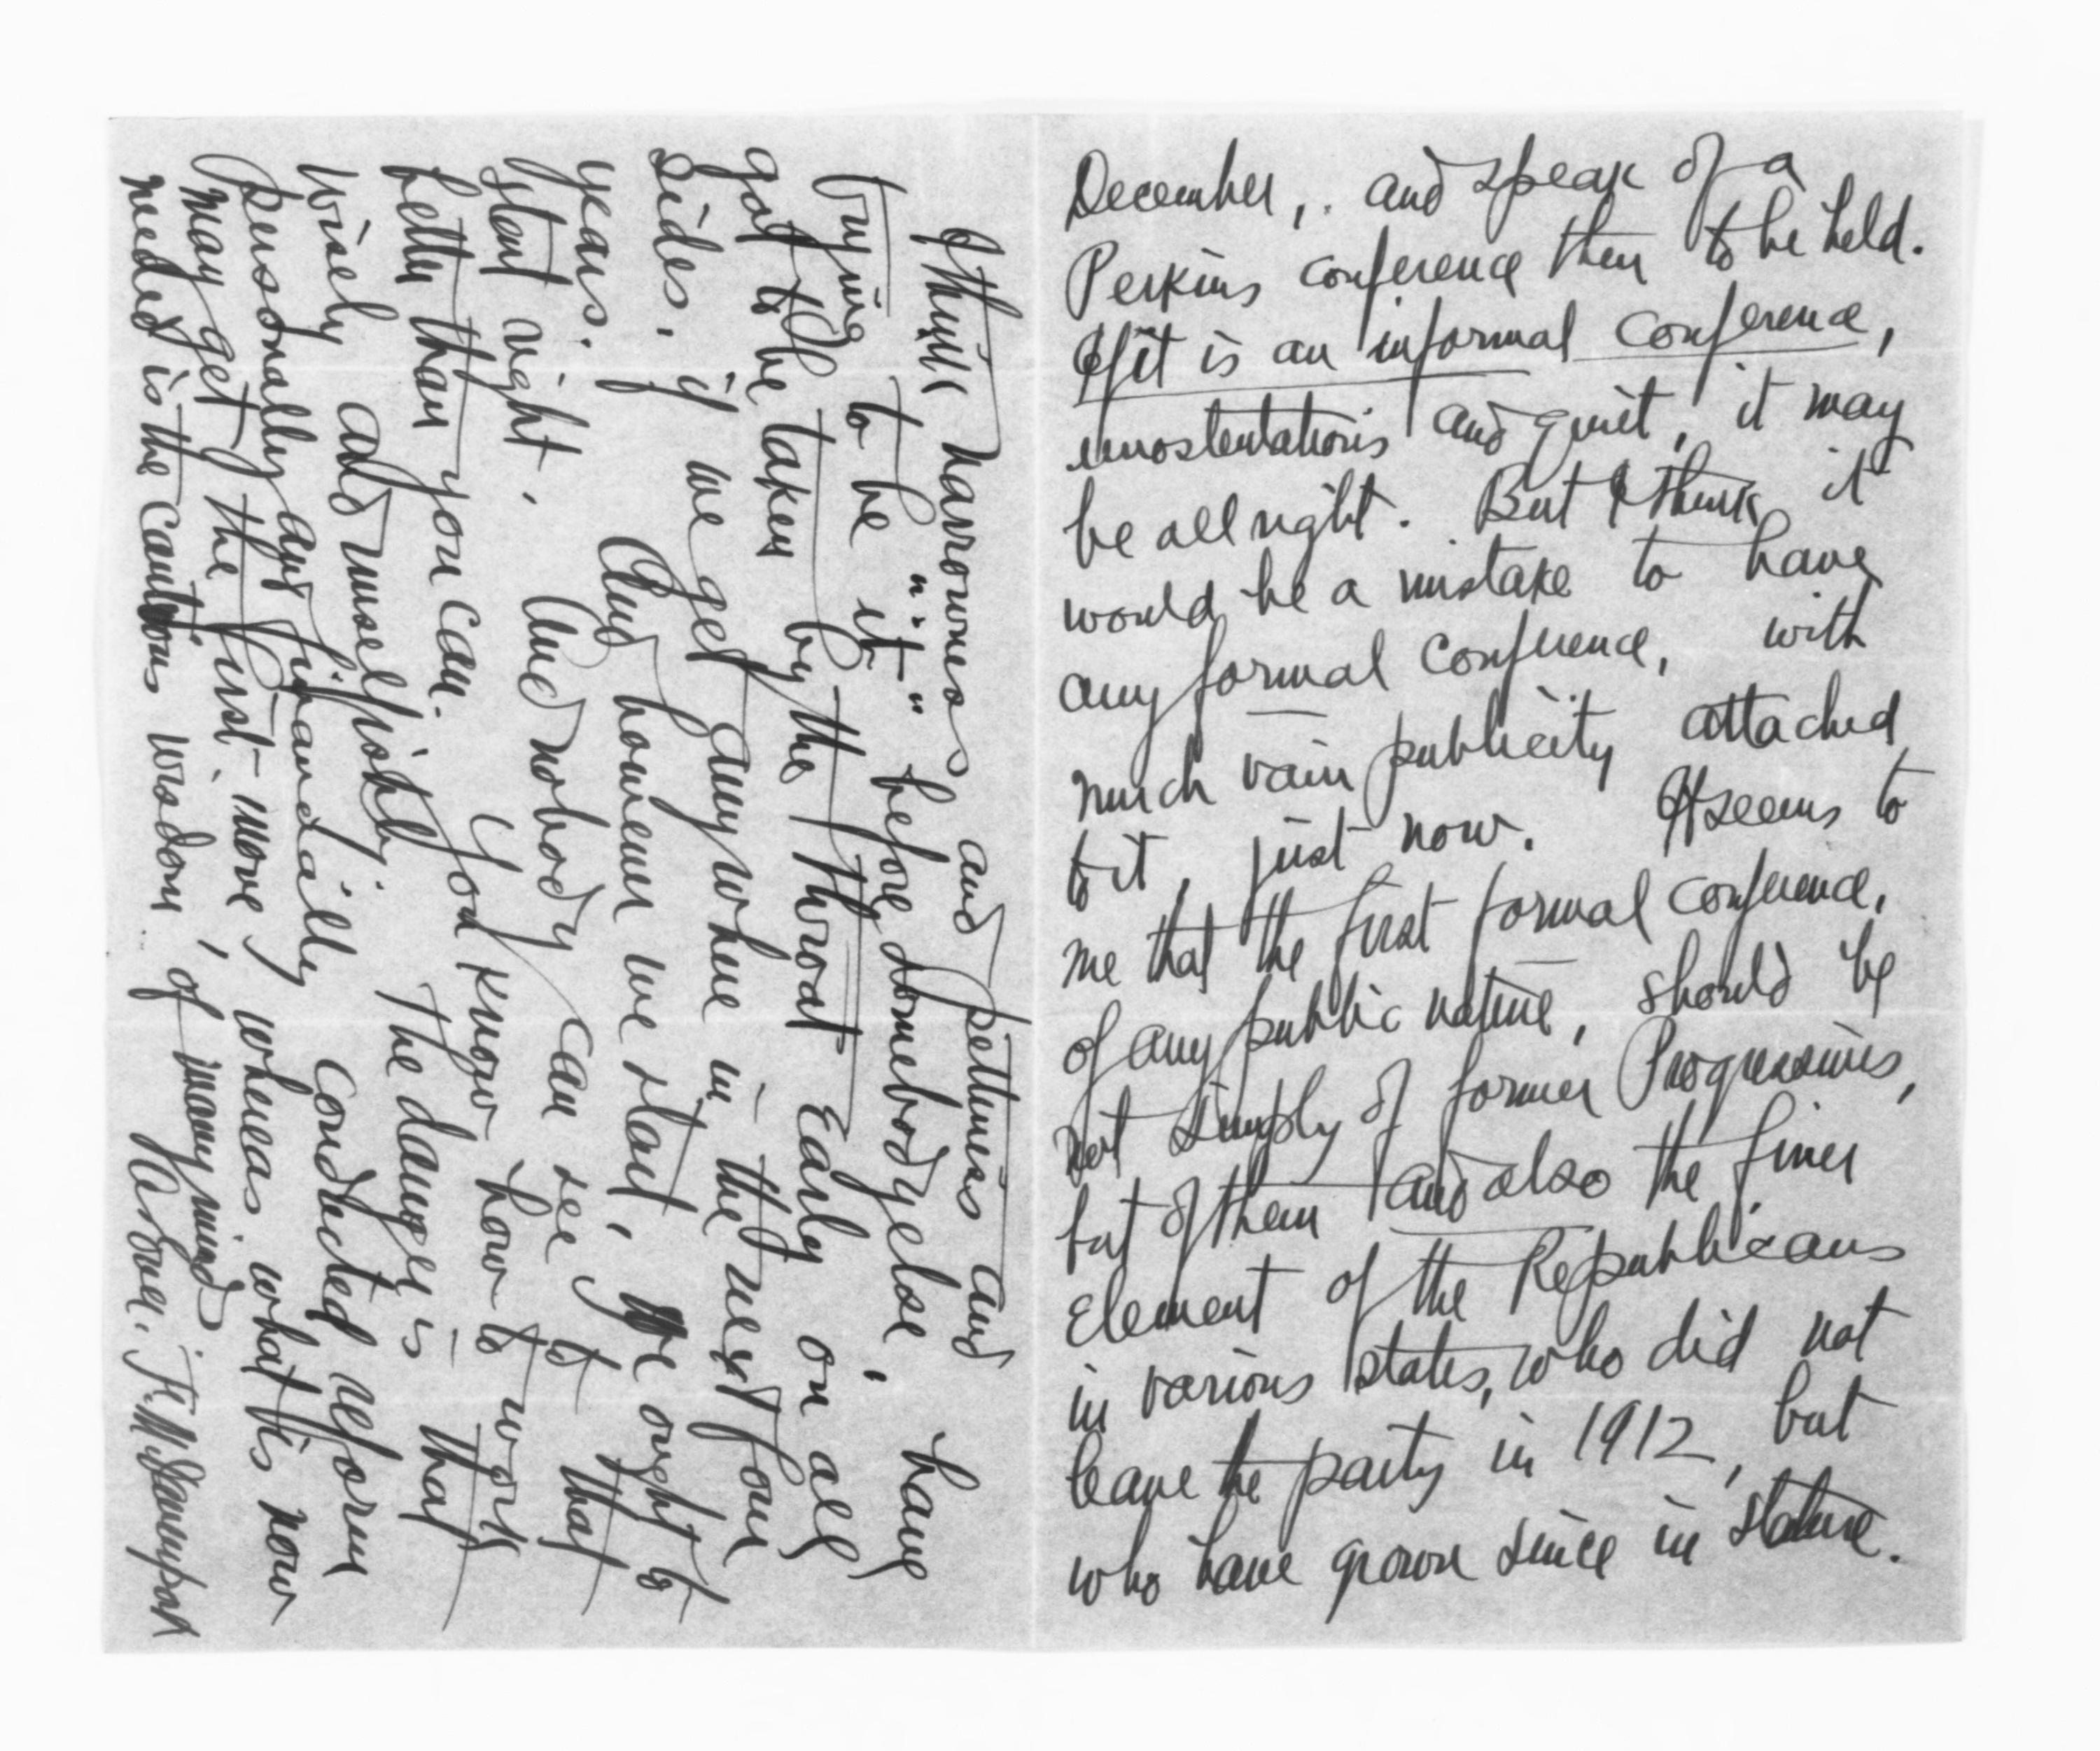 December, and speak of a
Perkins conference then to be held.
If it is an informal conference,
unostentatious and quiet, it may
be all right. But I think it
would be a mistake to have
any formal conference, with
much vain publicity attached
to it, just now. It seems to
me that the first formal conference,
of any public nature, should be
not simply of former Progressives,
but of them and also the finer
element of the Republicans
in various states, who did not
leave the party in 1912, but
who have grown since in stature.
I think narrowness and pettiness and
trying to be "it" before somebody else, have
got to be taken by the throat early on all
sides, if we get anywhere in the next four
years. And however we start, we ought to
start right. And nobody can see to that
better than you can. You know how to work
wisely and unselfishly. The danger is that
personally and financially conducted reform
may get the first move, whereas what is now
needed is the cautious wisdom of many minds
As ever. F. M. Davenport